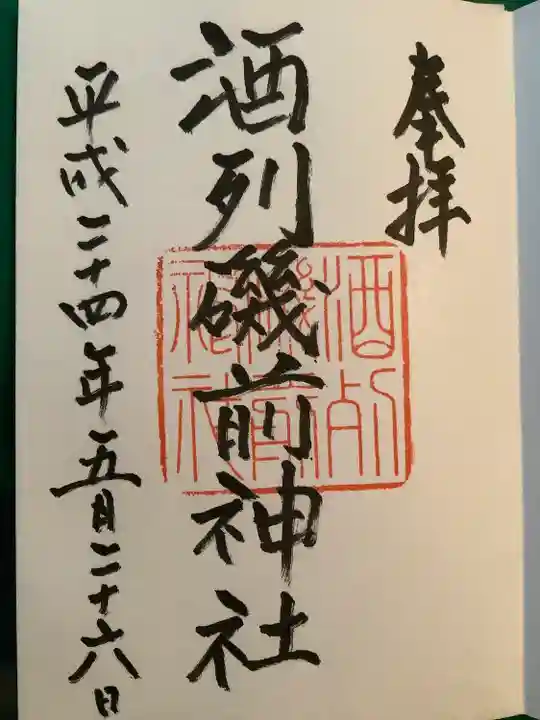 奉拝
酒列磯前神社
酒列磯前神社
平成二十四年五月二十六日